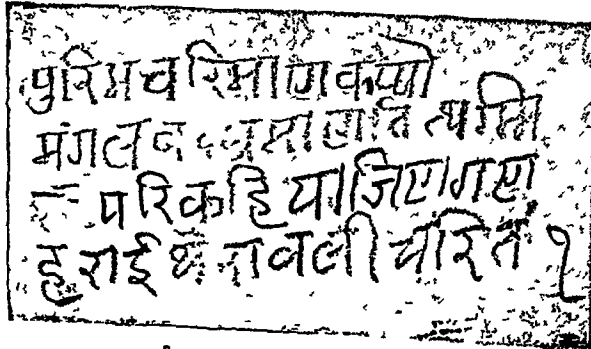 पुरिमचरिमाणकप्पो
मंगलवद्धमाणतित्थंमि
परिकहियाजिणगण
हराईथेरावलीचरितं १